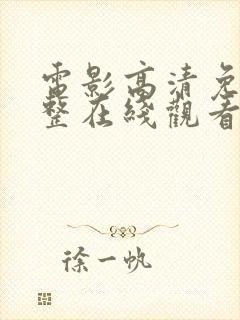 電影高清免
整在綫觀看
徐一帆